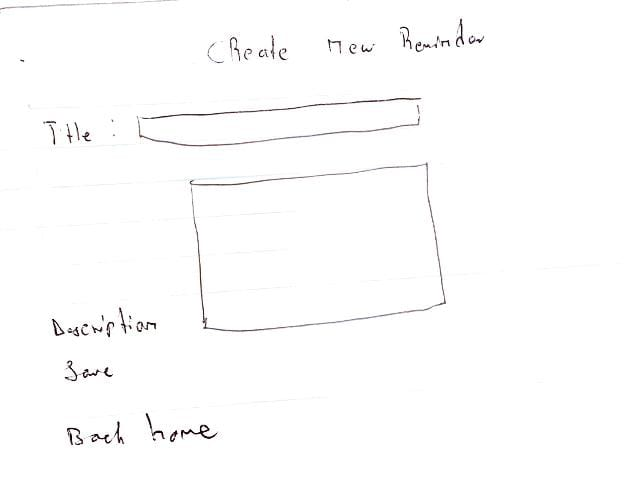 Create New Reminder
Title :
Description
Save
Back home